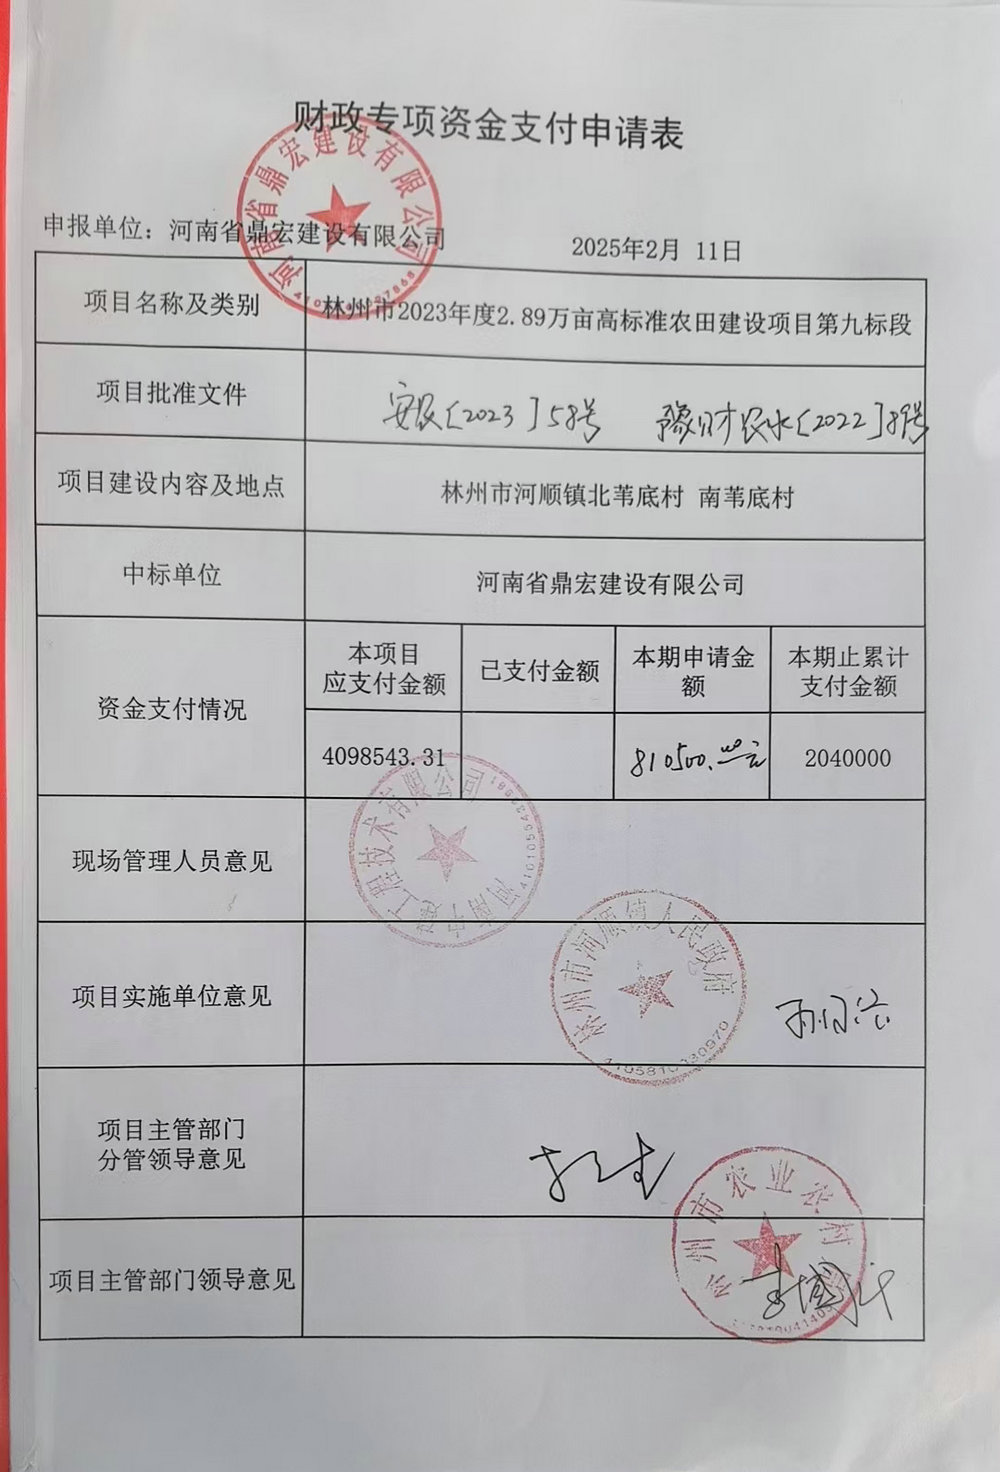 财政专项资金支付申请表
申报单位：河南省鼎宏建设有限公司
2025年2月 11日
项目名称及类别
林州市2023年度2.89万亩高标准农田建设项目第九标段
项目批准文件
安农〔2023〕58号 豫财农水〔2022〕89号
项目建设内容及地点
林州市河顺镇北苇底村 南苇底村
中标单位
河南省鼎宏建设有限公司
资金支付情况
本项目
应支付金额
已支付金额
本期申请金
额
本期止累计
支付金额
4098543.31
810500.00元
2040000
现场管理人员意见
项目实施单位意见
项目主管部门
分管领导意见
项目主管部门领导意见
河南省鼎宏建设有限公司
工程技术有限公司
林州市河顺镇人民政府
4105810030970
林州市农业农村